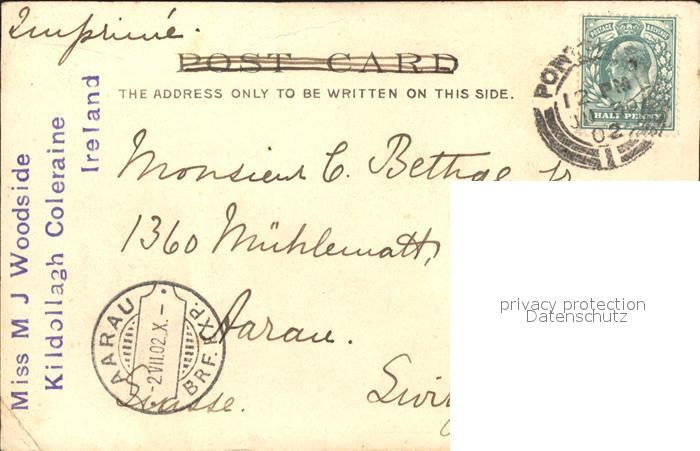 Imprimé.
POST CARD
THE ADDRESS ONLY TO BE WRITTEN ON THIS SIDE.
POSTAGE REVENUE
HALF PENNY
12 PM
02
1
Miss M J Woodside
Kildollagh Coleraine
Ireland
Monsieur C. Bethge Jr
1360 Mühlematt,
Aarau.
Suisse.
AARAU
-2.VII.02.X.-
BRF. EXP.
privacy protection
Datenschutz